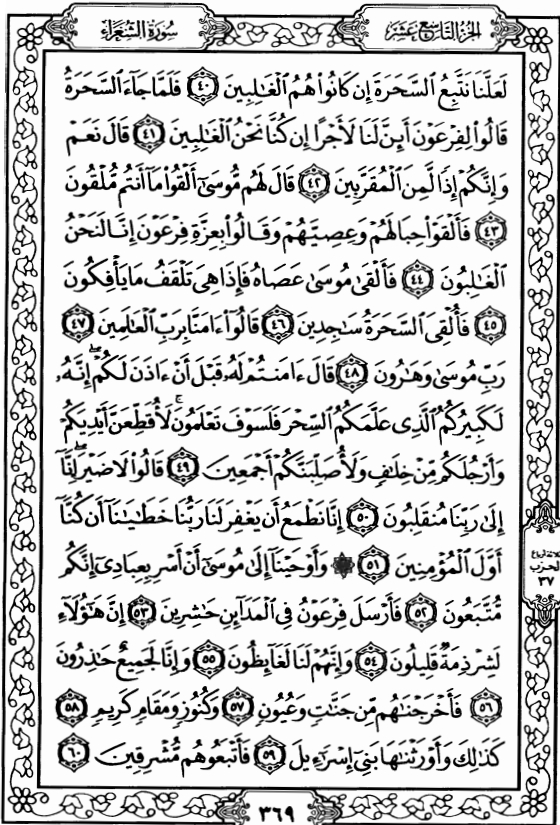 سُورَةُ الشُّعَرَاءِ
الجُزْءُ التَّاسِعَ عَشَرَ
لَعَلَّنَا نَتَّبِعُ ٱلسَّحَرَةَ إِن كَانُواْ هُمُ ٱلْغَٰلِبِينَ ٤٠ فَلَمَّا جَآءَ ٱلسَّحَرَةُ
قَالُواْ لِفِرْعَوْنَ أَئِنَّ لَنَا لَأَجْرًا إِن كُنَّا نَحْنُ ٱلْغَٰلِبِينَ ٤١ قَالَ نَعَمْ
وَإِنَّكُمْ إِذًا لَّمِنَ ٱلْمُقَرَّبِينَ ٤٢ قَالَ لَهُم مُّوسَىٰٓ أَلْقُواْ مَآ أَنتُم مُّلْقُونَ
٤٣ فَأَلْقَوْاْ حِبَالَهُمْ وَعِصِيَّهُمْ وَقَالُواْ بِعِزَّةِ فِرْعَوْنَ إِنَّا لَنَحْنُ
ٱلْغَٰلِبُونَ ٤٤ فَأَلْقَىٰ مُوسَىٰ عَصَاهُ فَإِذَا هِىَ تَلْقَفُ مَا يَأْفِكُونَ
٤٥ فَأُلْقِىَ ٱلسَّحَرَةُ سَٰجِدِينَ ٤٦ قَالُوٓاْ ءَامَنَّا بِرَبِّ ٱلْعَٰلَمِينَ ٤٧
رَبِّ مُوسَىٰ وَهَٰرُونَ ٤٨ قَالَ ءَامَنتُمْ لَهُۥ قَبْلَ أَنْ ءَاذَنَ لَكُمْ ۖ إِنَّهُۥ
لَكَبِيرُكُمُ ٱلَّذِى عَلَّمَكُمُ ٱلسِّحْرَ فَلَسَوْفَ تَعْلَمُونَ ۚ لَأُقَطِّعَنَّ أَيْدِيَكُمْ
وَأَرْجُلَكُم مِّنْ خِلَٰفٍ وَلَأُصَلِّبَنَّكُمْ أَجْمَعِينَ ٤٩ قَالُواْ لَا ضَيْرَ ۖ إِنَّآ
إِلَىٰ رَبِّنَا مُنقَلِبُونَ ٥٠ إِنَّا نَطْمَعُ أَن يَغْفِرَ لَنَا رَبُّنَا خَطَٰيَٰنَآ أَن كُنَّآ
أَوَّلَ ٱلْمُؤْمِنِينَ ٥١ ۞ وَأَوْحَيْنَآ إِلَىٰ مُوسَىٰٓ أَنْ أَسْرِ بِعِبَادِىٓ إِنَّكُم
مُّتَّبَعُونَ ٥٢ فَأَرْسَلَ فِرْعَوْنُ فِى ٱلْمَدَآئِنِ حَٰشِرِينَ ٥٣ إِنَّ هَٰٓؤُلَآءِ
لَشِرْذِمَةٌ قَلِيلُونَ ٥٤ وَإِنَّهُمْ لَنَا لَغَآئِظُونَ ٥٥ وَإِنَّا لَجَمِيعٌ حَٰذِرُونَ
٥٦ فَأَخْرَجْنَٰهُم مِّن جَنَّٰتٍ وَعُيُونٍ ٥٧ وَكُنُوزٍ وَمَقَامٍ كَرِيمٍ ٥٨
كَذَٰلِكَ وَأَوْرَثْنَٰهَا بَنِىٓ إِسْرَٰٓءِيلَ ٥٩ فَأَتْبَعُوهُم مُّشْرِقِينَ ٦٠
ثلاثة أرباع
الحزب
٣٧
٣٦٩